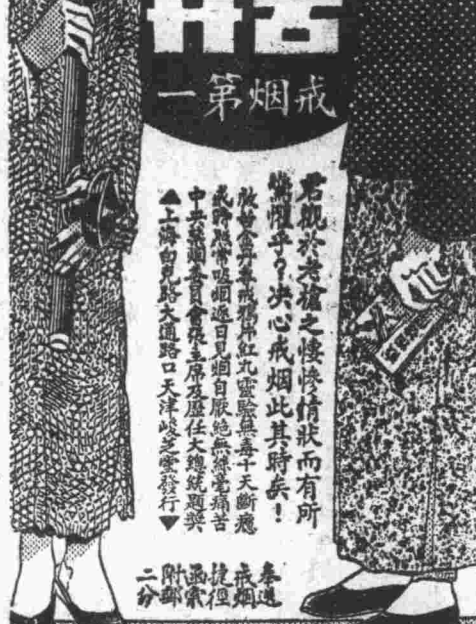 戒烟第一
君覩於老槍之悽慘情狀而有所
驚懼乎？决心戒烟此其時矣！
救苦金丹專戒鴉片紅丸靈驗無毒十天斷癮
戒時照常吸烟逐日見烟自厭絕無絲毫痛苦
中央禁烟委員會張主席及歷任大總統題獎
▲上海白克路大通路口天津芝雲發行▼
奉送
戒烟
捷徑
函索
附郵
二分